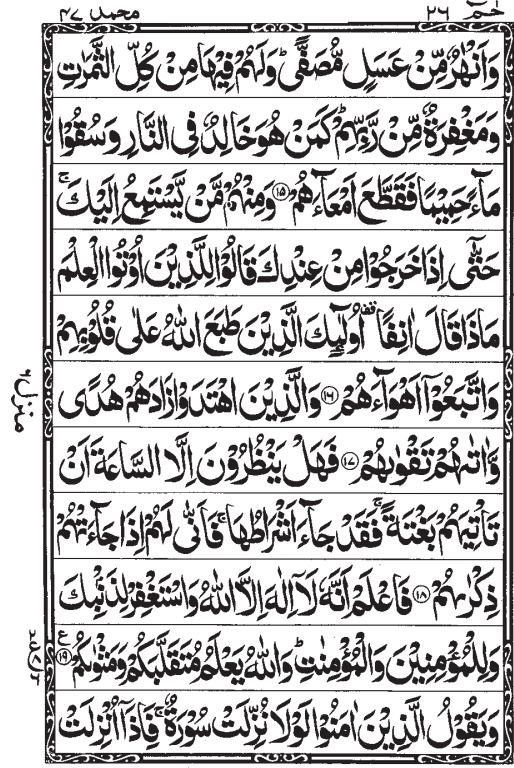 حٰمٓ ٢٦
محمد ٤٧
وَاَنْهٰرٌ مِّنْ عَسَلٍ مُّصَفًّى ؕ وَلَهُمْ فِيْهَا مِنْ كُلِّ الثَّمَرٰتِ
وَمَغْفِرَةٌ مِّنْ رَّبِّهِمْ ؕ كَمَنْ هُوَ خَالِدٌ فِى النَّارِ وَسُقُوْا
مَآءً حَمِيْمًا فَقَطَّعَ اَمْعَآءَهُمْ ﴿١٥﴾ وَمِنْهُمْ مَّنْ يَّسْتَمِعُ اِلَيْكَ ۚ
حَتّٰٓى اِذَا خَرَجُوْا مِنْ عِنْدِكَ قَالُوْا لِلَّذِيْنَ اُوْتُوا الْعِلْمَ
مَاذَا قَالَ اٰنِفًا ۟ اُولٰٓئِكَ الَّذِيْنَ طَبَعَ اللّٰهُ عَلٰى قُلُوْبِهِمْ
وَاتَّبَعُوْۤا اَهْوَآءَهُمْ ﴿١٦﴾ وَالَّذِيْنَ اهْتَدَوْا زَادَهُمْ هُدًى
وَّاٰتٰىهُمْ تَقْوٰىهُمْ ﴿١٧﴾ فَهَلْ يَنْظُرُوْنَ اِلَّا السَّاعَةَ اَنْ
تَاْتِيَهُمْ بَغْتَةً ۚ فَقَدْ جَآءَ اَشْرَاطُهَا ۚ فَاَنّٰى لَهُمْ اِذَا جَآءَتْهُمْ
ذِكْرٰىهُمْ ﴿١٨﴾ فَاعْلَمْ اَنَّهٗ لَاۤ اِلٰهَ اِلَّا اللّٰهُ وَاسْتَغْفِرْ لِذَنْۢبِكَ
وَلِلْمُؤْمِنِيْنَ وَالْمُؤْمِنٰتِ ؕ وَاللّٰهُ يَعْلَمُ مُتَقَلَّبَكُمْ وَمَثْوٰىكُمْ ﴿١٩﴾ ع
وَيَقُوْلُ الَّذِيْنَ اٰمَنُوْا لَوْلَا نُزِّلَتْ سُوْرَةٌ ۚ فَاِذَاۤ اُنْزِلَتْ
منزل ٦